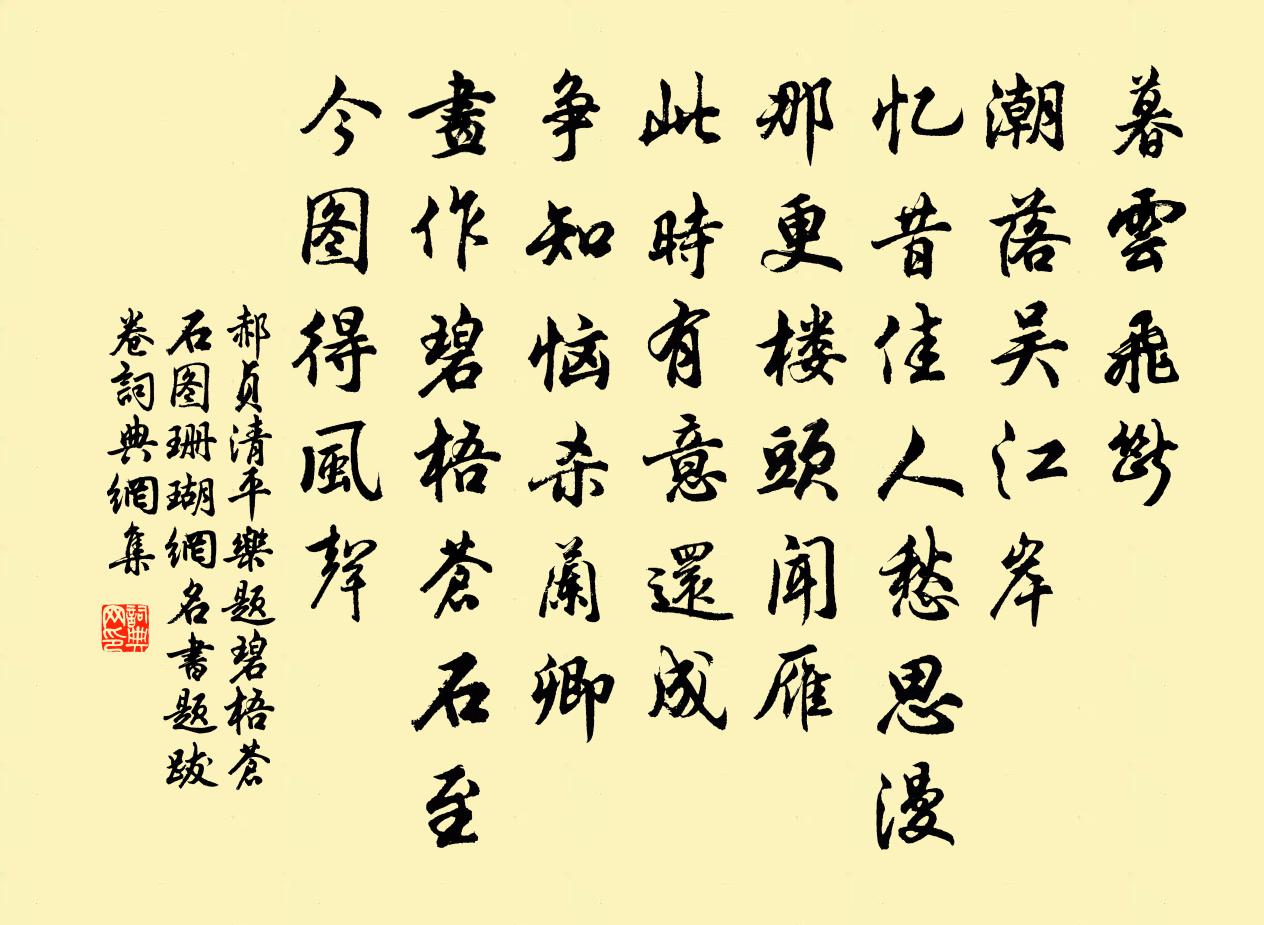 暮雲飛斷
潮落吴江岸
忆昔佳人愁思漫
那更楼頭聞雁
此時有意還成
争知恼杀蘭卿
畫作碧梧蒼石至
今图得風聲
郝貞清平樂題碧梧蒼
石图珊瑚網名書題跋
卷詞典網集
詞典網印